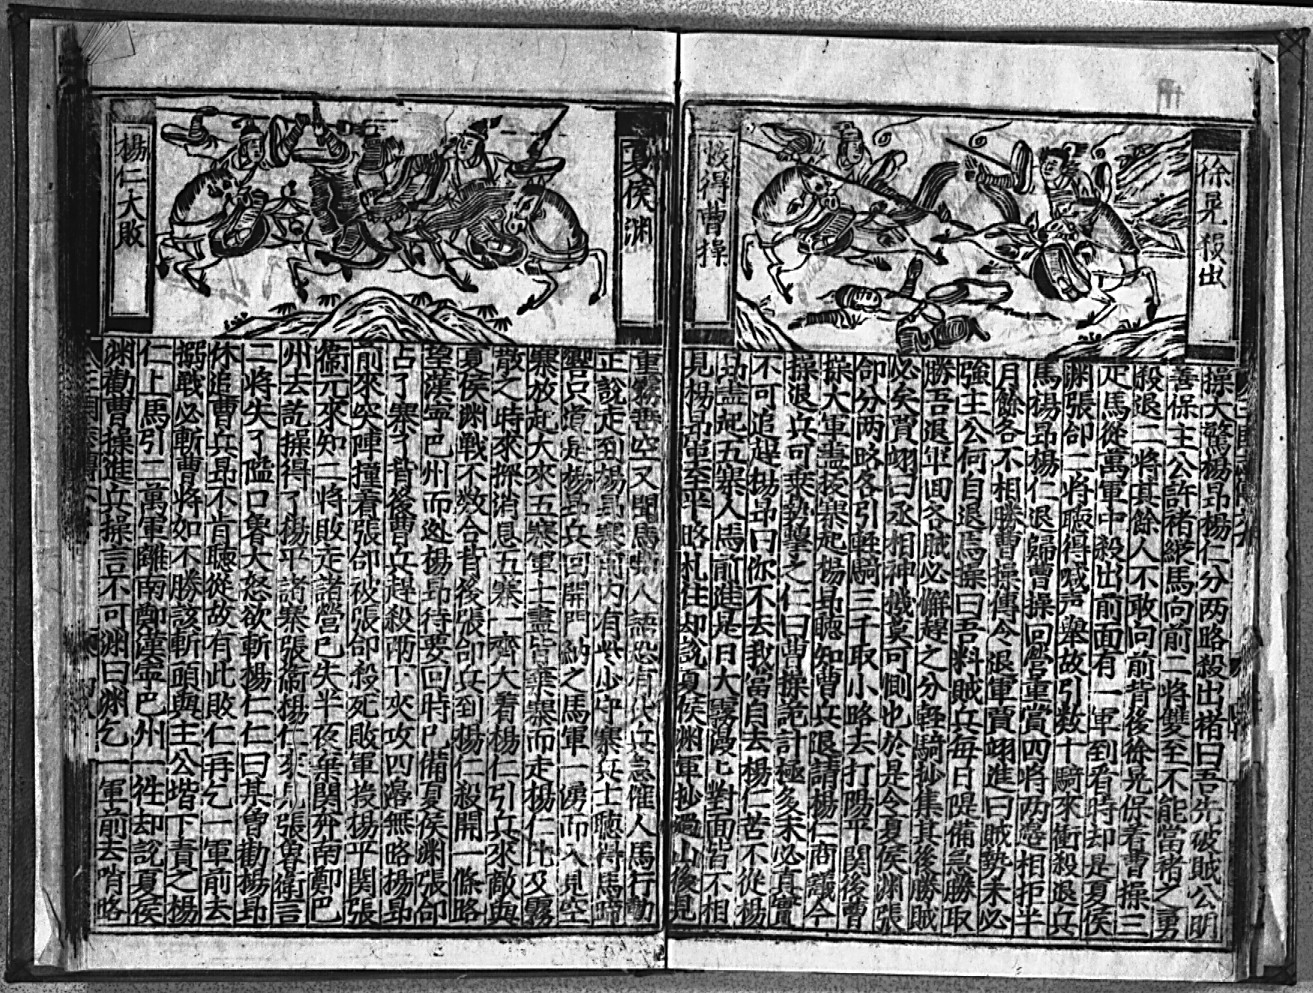 徐晃殺出
救得曹操
操大驚楊昂楊仁分两路殺出褚曰吾先破賊公明
善保主公許褚縱馬向前二將雙至不能當褚之勇
殺退二將其餘人不敢向前背後徐晃保着曹操三
疋馬從萬軍中殺出前面有一軍到看時却是夏侯
渊張郃二將聽得喊声舉故引数十騎來衝殺退兵
馬楊昂楊仁退歸曹操回營重賞四將两邉相拒半
月餘各不相勝曹操傳令退軍賈翊進曰賊势未必
強主公何自退焉操曰吾料賊兵每日隄俻急勝取
勝吾退軍囬各賊必懈趕之分輕騎抄集其後勝賊
必矣賈翊曰丞相神機莫可側也於是令夏侯渊張
郃分两路各引輕騎三千取小路去打陽平関後曹
操大軍盡扳寨起楊昂聽知曹兵退請楊仁商議今
操退兵可乗勢擊之仁曰曹操詭計極多未必真實
不可追趕楊昂曰你不去我當自去楊仁苦不從楊
昂盡起五寨人馬前進是日大霧漫匕對面皆不相
見楊昂軍至半路札住却說夏侯渊軍抄過山後見
夏侯渊
楊仁大敗
重霧垂空又聞馬 人語恐有伏兵急催人馬行動
正說走到楊昂寨前内有些少守寨兵士聽得馬蹄
響只道是楊昂兵囬開門納之馬軍一湧而入見空
寨放起大來五寨軍士盡皆棄寨而走楊仁比及霧
散之時來探消息五寨一齊大着楊仁引兵來敵與
夏侯渊戰不数合背後張郃兵到楊仁殺開一條路
望漢寧巴州而迯楊昂待要回時已備夏侯渊張郃
占了寨了背後曹兵趕殺兩下夾攻四邉無路楊昂
前來突陣撞着張郃被張郃殺死敗軍投楊平関張
衛元來知二將敗走諸營已失半夜棄関奔南鄭巴
州去訖操得了楊平諸寨張衛楊仁來見張魯衛言
二將失了隘口魯大怒欲斬楊仁仁曰某曾勸楊昂
休追曹兵昂不肯聽從故有此敗仁再乞一軍前去
搦戰必斬曹將如不勝該斬頭與主公堦下責之楊
仁上馬引二萬軍離南鄭漢寧巴州一徃却說夏侯
渊勸曹操進兵操言不可渊曰渊乞一軍前去哨路